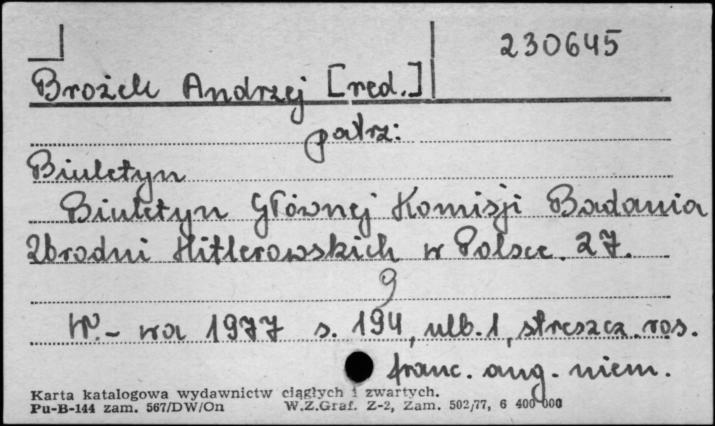 230645
Brożek Andrzej [red.]
patrz:
Biuletyn
Biuletyn Głównej Komisji Badania
Zbrodni Hitlerowskich w Polsce. 27.
9
W.-wa 1977 s. 194, ulb. 1, streszcz. ros.
franc. ang. niem.
Karta katalogowa wydawnictw ciągłych i zwartych.
Pu-B-144 zam. 567/DW/On W.Z.Graf. Z-2, Zam. 502/77, 6 400 000